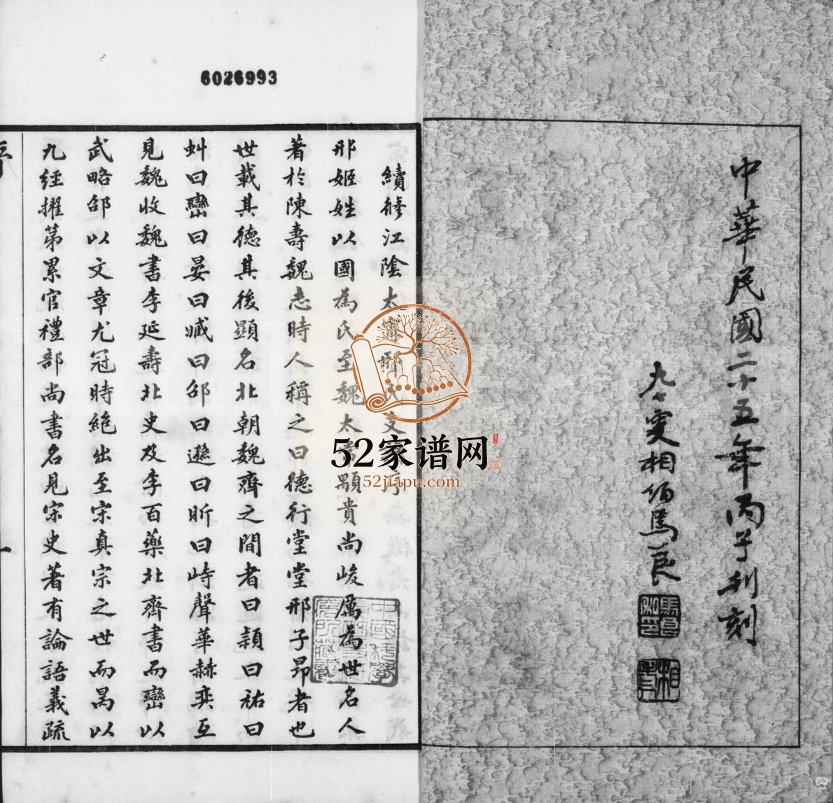 中華民國二十五年丙子刊刻
九七叟相伯馬良
6026993
續修江陰太寧邢氏支序
邢姬姓以國為氏至魏太常顒貴尚峻厲為世名人
著於陳壽魏志時人稱之曰德行堂堂邢子昂者也
世載其德其後顯名北朝魏齊之間者曰穎曰祐曰
虯曰巒曰晏曰臧曰邵曰遜曰昕曰峙聲華赫奕互
見魏收魏書李延壽北史及李百藥北齊書而巒以
武略邵以文章尤冠時絕出至宋真宗之世而昺以
九經擢第累官禮部尚書名見宋史著有論語義疏
序
一
52家谱网
52jiapu.com